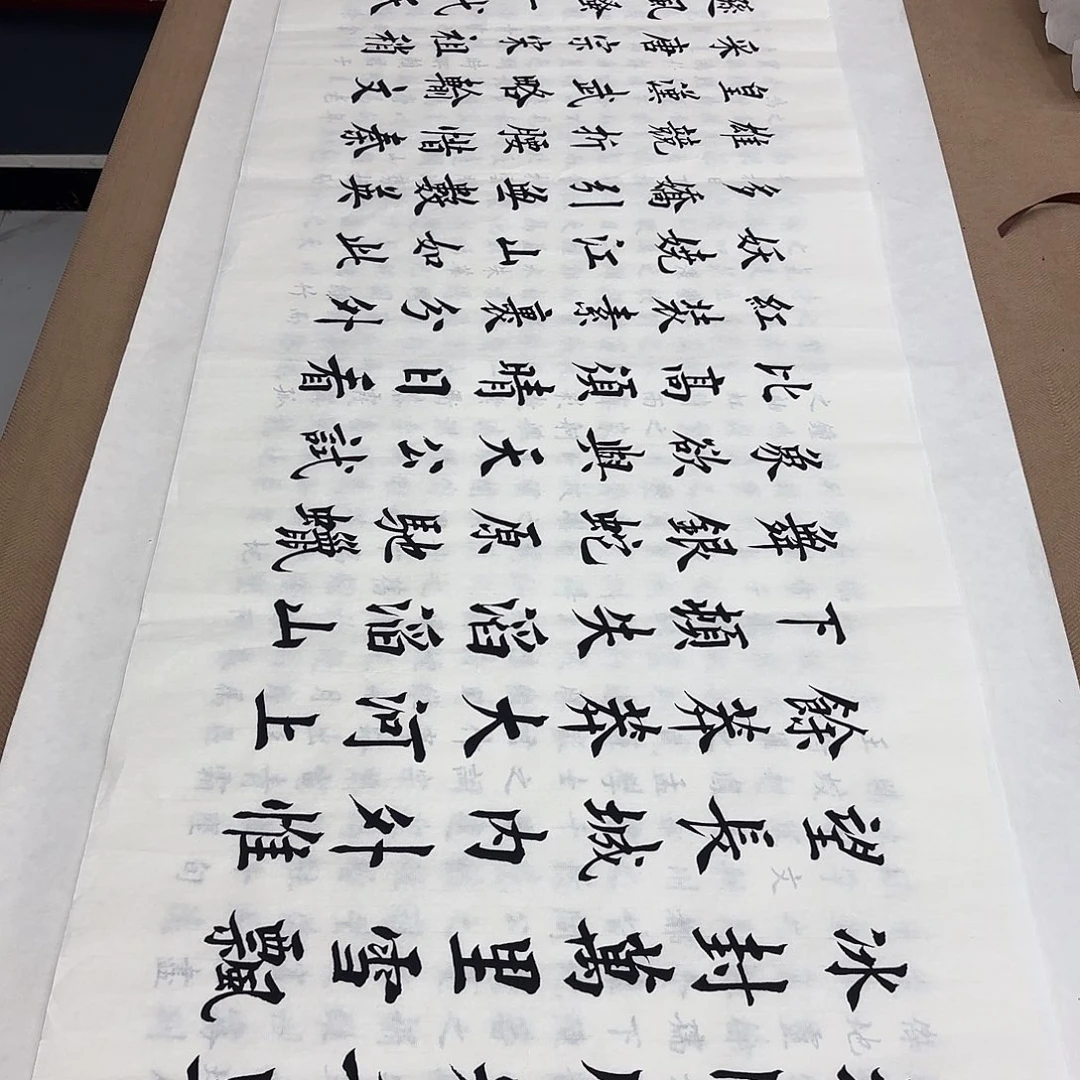 冰封萬里雪飄
望長城內外惟
餘莽莽大河上
下頓失滔滔山
舞銀蛇原馳蠟
象欲與天公試
比高須晴日看
紅裝素裹分外
妖嬈江山如此
多嬌引無數英
雄競折腰惜秦
皇漢武略輸文
采唐宗宋祖稍
遜風騷一代天